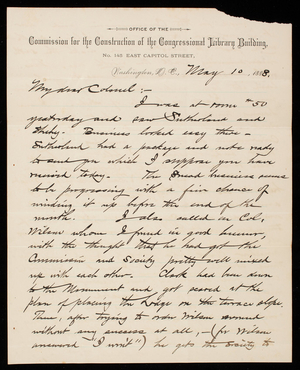 OFFICE OF THE
Commission for the Construction of the Congressional Library Building,
No. 145 EAST CAPITOL STREET,
Washington, D. C., May 10 1888.
My dear Colonel:-
I was at room #50
yesterday and saw Sutherland and
Kirby. Business looked easy there -
Sutherland had a package and note ready
to send you which I suppose you have
received today. The Bread business seems
to be progressing with a fair chance of
winding it up before the end of the
month. I also called in Col,
Wilson whom I found in good humor,
with the thought that he had got the
Commission and Society pretty well mixed
up with each other. Clark had been down
to the Monument and got scared at the
plan of placing the Lodge on the terrace slope.
Then, after trying to move Wilson around
without any success at all, - (for Wilson
answered "I won't") he gets the Society to